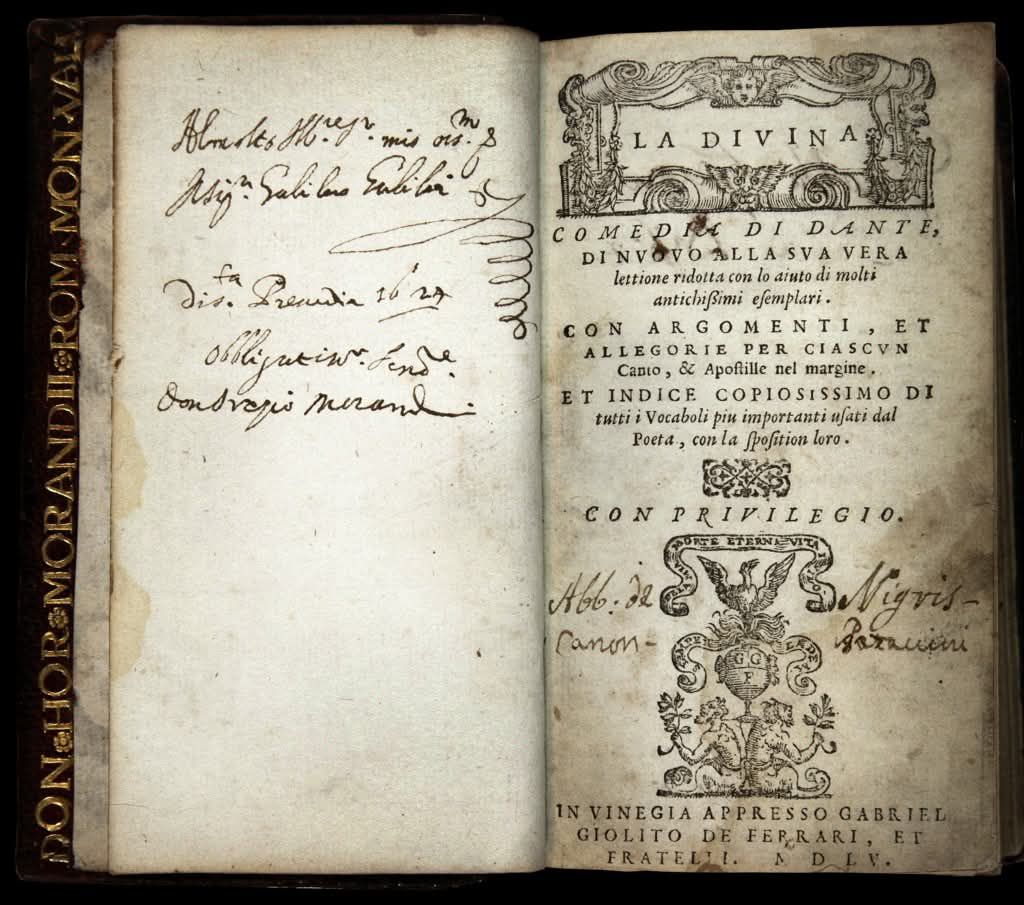 DON HOR MORANDII ROM MON VAL
Al molto Ill.re Sr. mio oss.mo
Il sigr. Galileo Galilei
Di s.ta Praxedia 1624
Obbligatiss.
Don Orazio Morandi
LA DIVINA
COMEDIA DI DANTE,
DI NVOVO ALLA SVA VERA
lettione ridotta con lo aiuto di molti
antichißimi esemplari.
CON ARGOMENTI, ET
ALLEGORIE PER CIASCVN
Canto, & Apostille nel margine.
ET INDICE COPIOSISSIMO DI
tutti i Vocaboli piu importanti usati dal
Poeta, con la sposition loro.
CON PRIVILEGIO.
MORTE ETERNA VITA
Abb: de Nigris-
Canon-
SEMPER EADEM
GG
F
IN VINEGIA APPRESSO GABRIEL
GIOLITO DE FERRARI, ET
FRATELLI. M D LV.